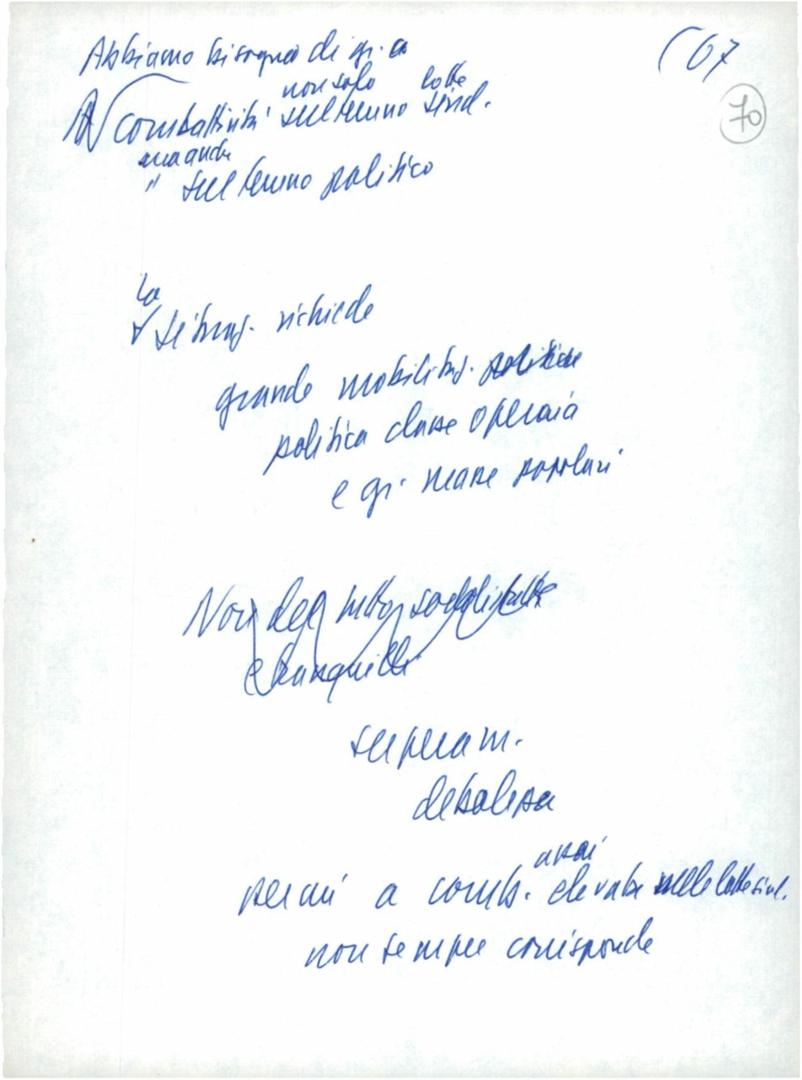 (67
70
Abbiamo bisogno di gr.
combattività non solo sul terreno lotte sind.
ma anche
" sul terreno politico
la
situaz. richiede
grande mobilitaz. politica
politica classe operaia
e gr. masse popolari
Non del tutto soddisfatti
e tranquilli
superam.
debolezza
per cui a comb. assai elevata nelle lotte sind.
non sempre corrisponde